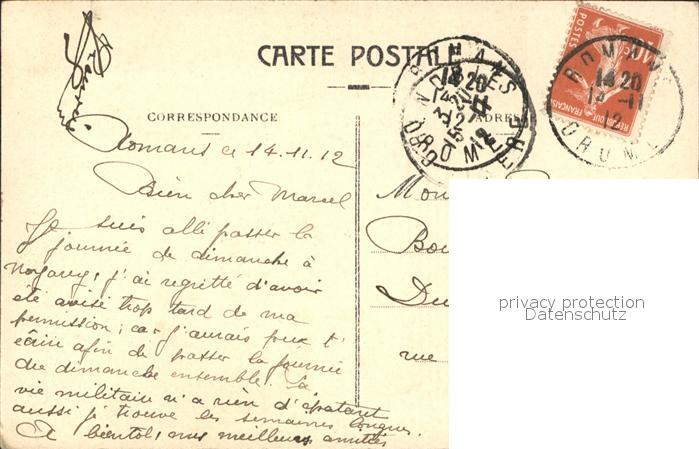 CARTE POSTALE
CORRESPONDANCE
ADRESSE
ROMANS
14 20
14 -11
12
DROME
REPUBLIQUE FRANÇAISE
POSTES
10
Romans ce 14.11.12
Bien cher Marcel
Je suis allé passer la
journée de dimanche à
j'ai regretté d'avoir
été avisé trop tard de ma
permission; car j'aurais peux t'
écrire afin de passer la journée
du dimanche ensemble. La
vie militaire n'a rien d'épatant
aussi je trouve les semaines longues.
A bientôt, mes meilleures amitiés
Mon
Bou
Du
rue
privacy protection
Datenschutz